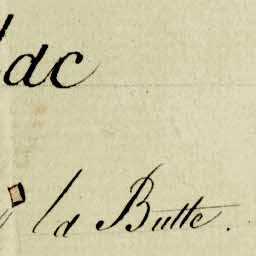 dac
la Butte.